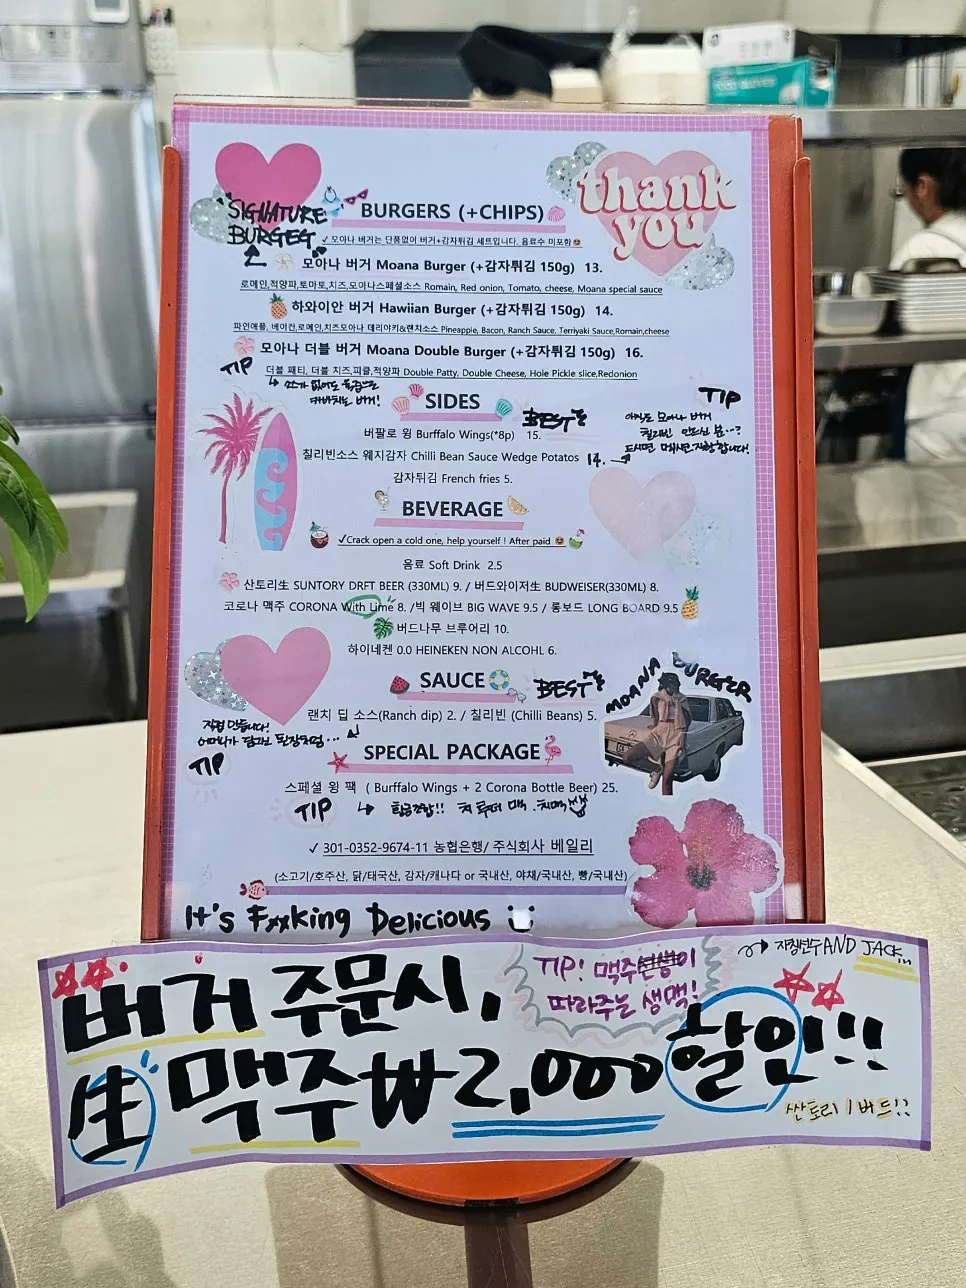 FOOD GLOVES
thank
you
"SIGNATURE
BURGEG"
BURGERS (+CHIPS)
✓ 모아나 버거는 단품없이 버거+감자튀김 세트입니다. 음료수 미포함
모아나 버거 Moana Burger (+감자튀김 150g) 13.
로메인,적양파,토마토,치즈,모아나스페셜소스 Romain, Red onion, Tomato, cheese, Moana special sauce
하와이안 버거 Hawiian Burger (+감자튀김 150g) 14.
파인애플, 베이컨,로메인,치즈모아나 데리야키&랜치소스 Pineapple, Bacon, Ranch Sauce, Terriyaki Sauce,Romain,cheese
모아나 더블 버거 Moana Double Burger (+감자튀김 150g) 16.
더블 패티, 더블 치즈,피클,적양파 Double Patty, Double Cheese, Hole Pickle slice,Redonion
TIP
커버치는 버거!
SIDES
BEST
버팔로 윙 Burffalo Wings(*8p) 15.
칠리빈소스 웨지감자 Chilli Bean Sauce Wedge Potatos 14.
감자튀김 French fries 5.
TIP
아직도 모아나 버거
칠리빈 안드신 분...?
드시면 대시면 자랑합니다!
BEVERAGE
✓Crack open a cold one, help yourself ! After paid
음료 Soft Drink 2.5
산토리生 SUNTORY DRFT BEER (330ML) 9. / 버드와이저生 BUDWEISER(330ML) 8.
코로나 맥주 CORONA With Lime 8. /빅 웨이브 BIG WAVE 9.5 / 롱보드 LONG BOARD 9.5
버드나무 브루어리 10.
하이네켄 0.0 HEINEKEN NON ALCOHL 6.
SAUCE
BEST
랜치 딥 소스(Ranch dip) 2. / 칠리빈 (Chilli Beans) 5.
직접 만듭니다!
어머니가 담그신 된장처럼...
TIP
MOANA BURGER
SPECIAL PACKAGE
스페셜 윙 팩 ( Burffalo Wings + 2 Corona Bottle Beer) 25.
TIP
✓ 301-0352-9674-11 농협은행/ 주식회사 베일리
(소고기/호주산, 닭/태국산, 감자/캐나다 or 국내산, 야채/국내산, 빵/국내산)
It's Fxxking Delicious
버거 주문시,
TIP! 맥주이
따라주는 생맥!
자칭선수 AND JACK
生 맥주₩2,000 할인!!
싼토리 / 버드!?